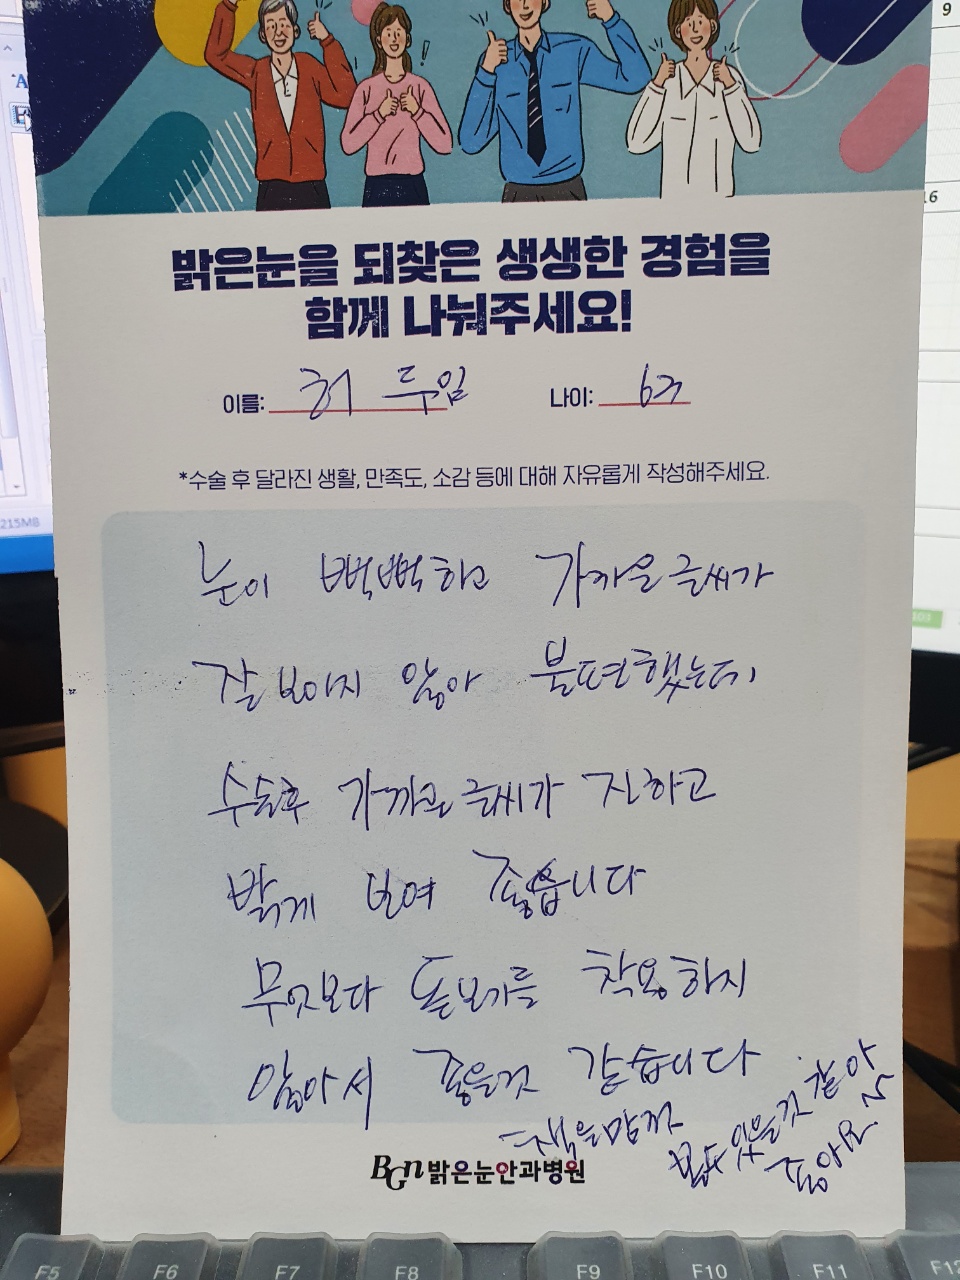 밝은눈을 되찾은 생생한 경험을
함께 나눠주세요!
이름: 허 두임 나이: 63
*수술 후 달라진 생활, 만족도, 소감 등에 대해 자유롭게 작성해주세요.
눈이 뻑뻑하고 가까운 글씨가
잘 보이지 않아 불편했는데
수술후 가까운 글씨가 진하고
밝게 보여 좋습니다
무엇보다 돋보기를 착용하지
않아서 좋을것 같습니다
책을 맘껏
볼수 있을것 같아
좋아요
BGn밝은눈안과병원
215MB
9
16
F5 F6 F7 F8 F9 F10 F11 F12